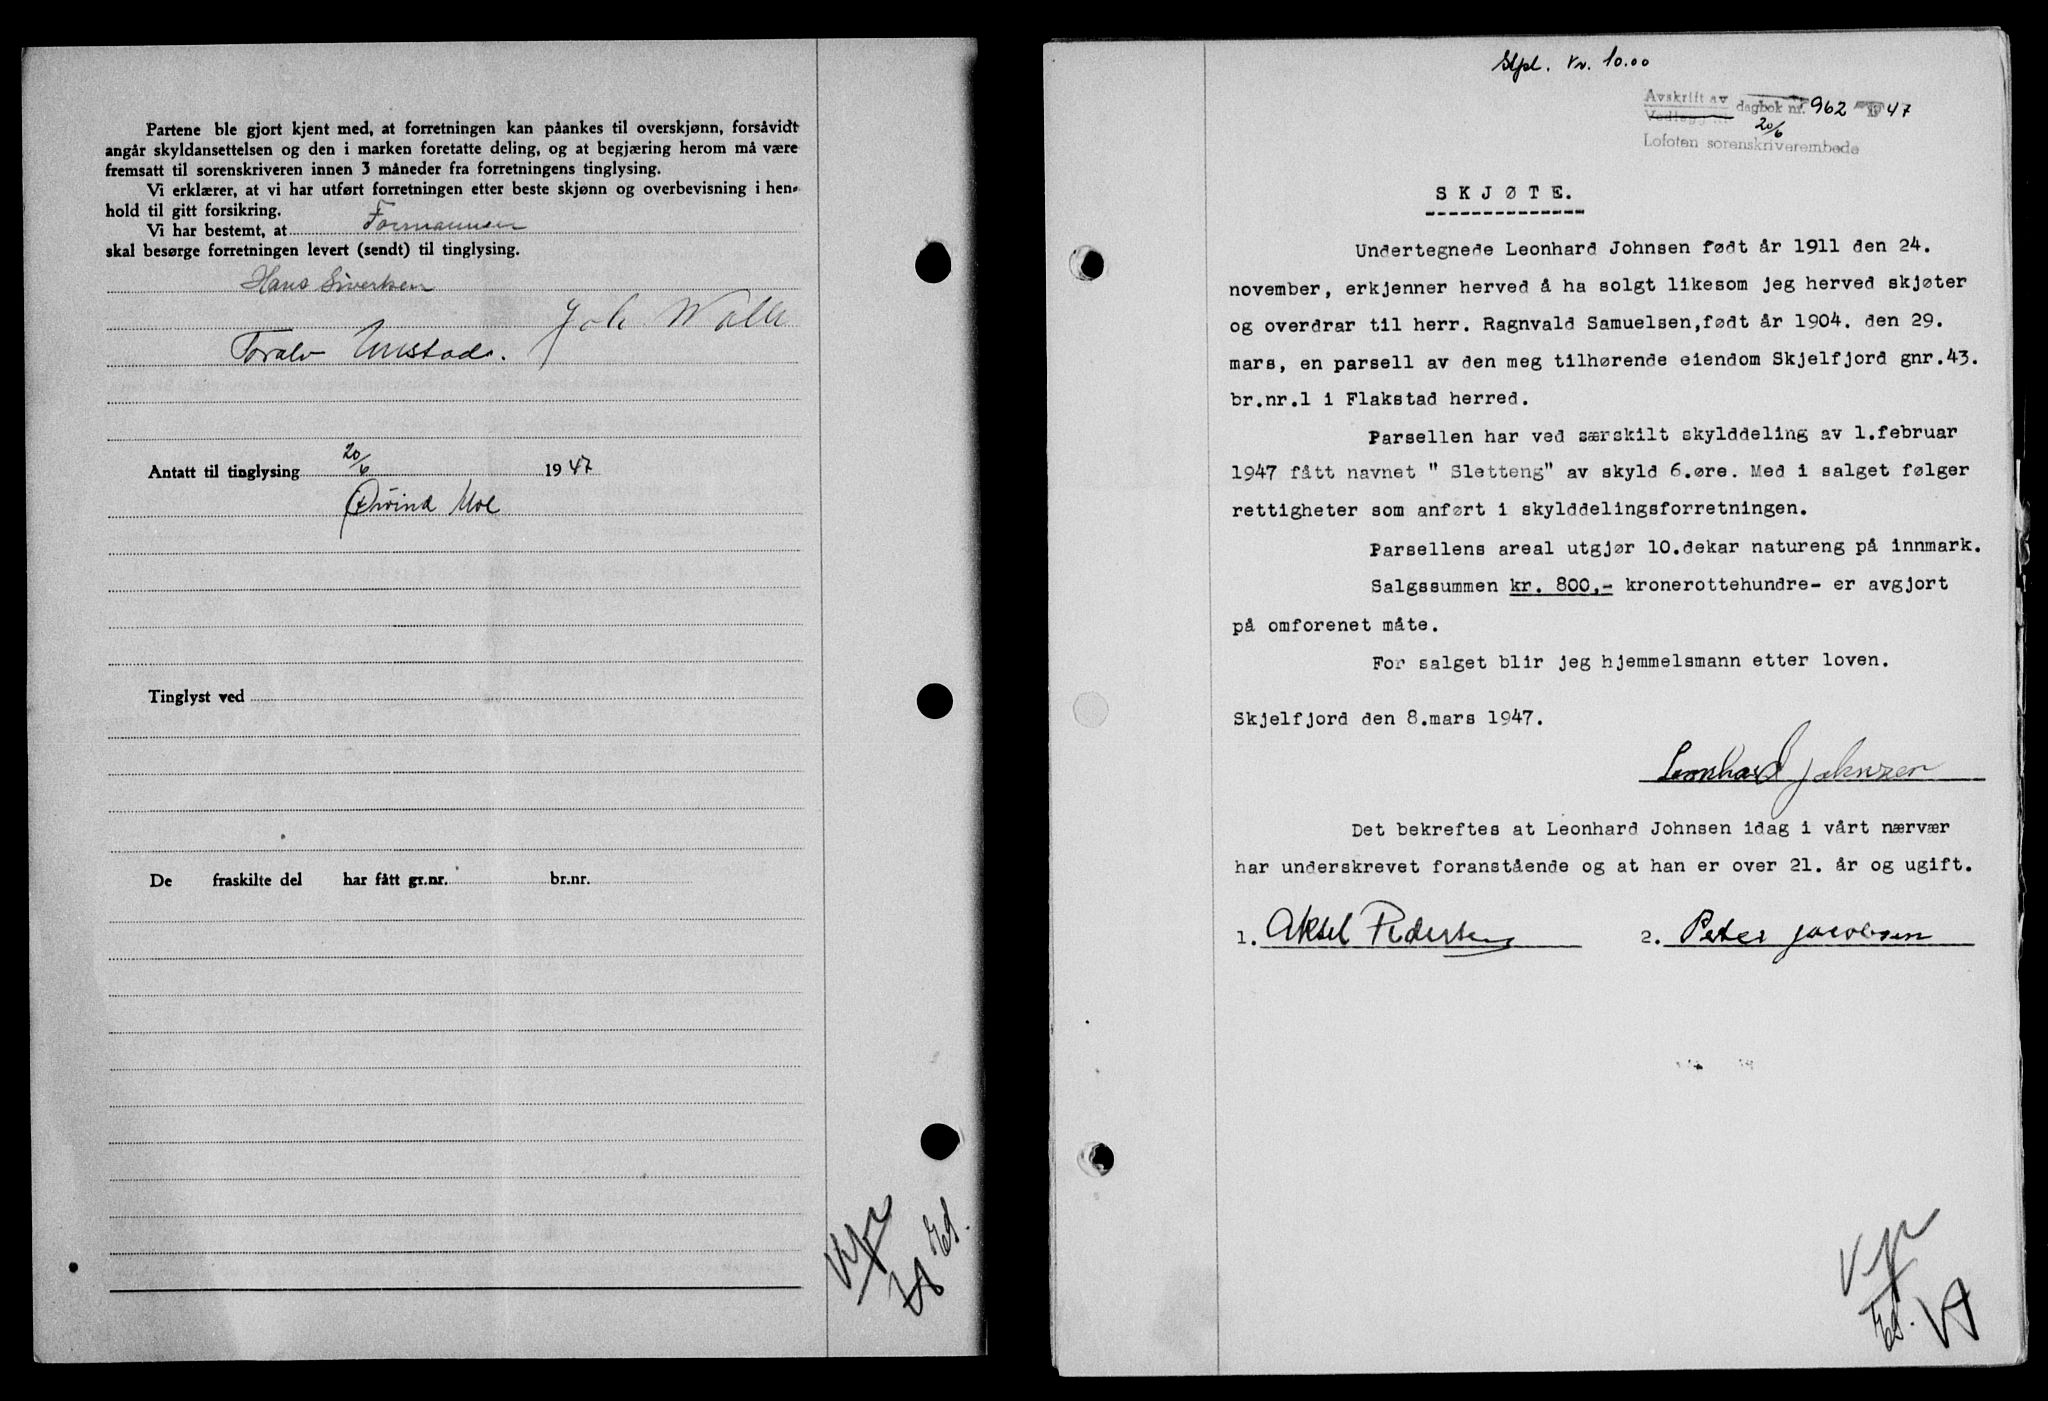 Partene ble gjort kjent med, at forretningen kan påankes til overskjønn, forsåvidt
angår skyldansettelsen og den i marken foretatte deling, og at begjæring herom må være
fremsatt til sorenskriveren innen 3 måneder fra forretningens tinglysing.
Vi erklærer, at vi har utført forretningen etter beste skjønn og overbevisning i hen-
hold til gitt forsikring.
Vi har bestemt, at Formannen
skal besørge forretningen levert (sendt) til tinglysing.
Hans Sivertsen
Joh Wolle
Toralv Unstad.
Antatt til tinglysing 20/6 1947
Øivind Moe
Tinglyst ved
De fraskilte del har fått gr.nr. br.nr.
Stpl. kr. 10.00
Avskrift av
Vedlegg dagbok nr. 962 1947
20/6
Lofoten sorenskriverembede
SKJØTE.
Undertegnede Leonhard Johnsen født år 1911 den 24.
november, erkjenner herved å ha solgt likesom jeg herved skjøter
og overdrar til herr. Ragnvald Samuelsen,født år 1904. den 29.
mars, en parsell av den meg tilhørende eiendom Skjelfjord gnr.43.
br.nr.1 i Flakstad herred.
Parsellen har ved særskilt skylddeling av 1.februar
1947 fått navnet " Sletteng" av skyld 6.øre. Med i salget følger
rettigheter som anført i skylddelingsforretningen.
Parsellens areal utgjør 10.dekar natureng på innmark.
Salgssummen kr. 800,- kronerottehundre- er avgjort
på omforenet måte.
For salget blir jeg hjemmelsmann etter loven.
Skjelfjord den 8.mars 1947.
Leonhard Johnsen
Det bekreftes at Leonhard Johnsen idag i vårt nærvær
har underskrevet foranstående og at han er over 21. år og ugift.
1. Aksel Pedersen 2. Peter Jacobsen